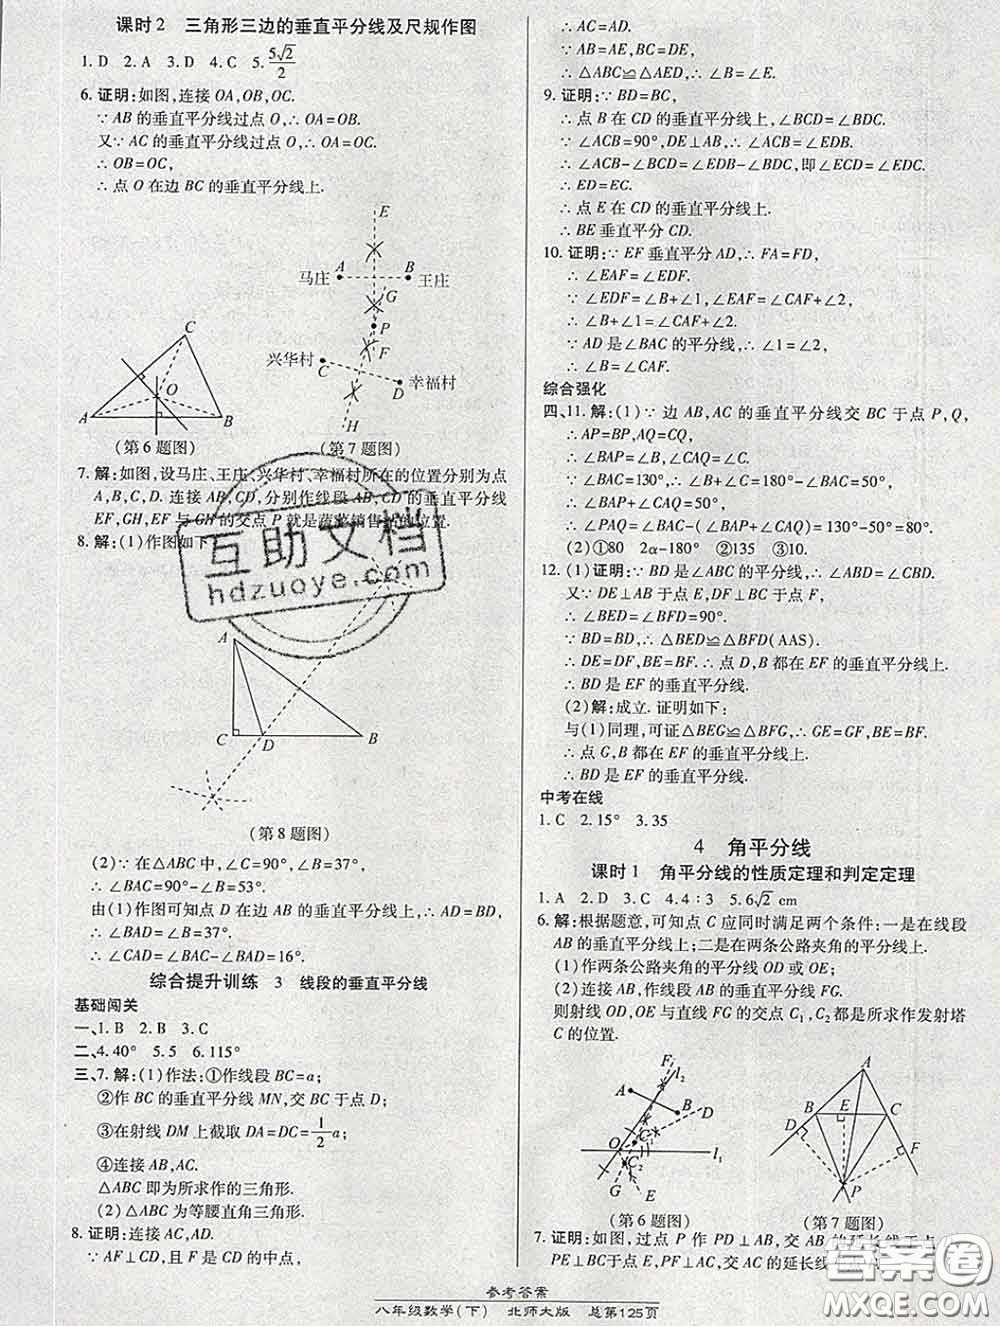 课时2 三角形三边的垂直平分线及尺规作图
1. D 2. A 3. D 4. C 5. 5√2/2
6. 证明:如图,连接 OA,OB,OC.
∵ AB 的垂直平分线过点 O,∴ OA=OB.
又∵ AC 的垂直平分线过点 O,∴ OA=OC.
∴ OB=OC,
∴ 点 O 在边 BC 的垂直平分线上.
E
马庄 A B 王庄
G
P
F
兴华村 C
D 幸福村
H
C
O
A B
(第6题图) (第7题图)
7. 解:如图,设马庄、王庄、兴华村、幸福村所在的位置分别为点
A,B,C,D. 连接 AB,CD,分别作线段 AB,CD 的垂直平分线
EF,GH,EF 与 GH 的交点 P 就是蔬菜销售站的位置.
8. 解:(1)作图如下
互助文档
hdzuoye.com
A
C D B
(第8题图)
(2)∵ 在△ABC 中,∠C=90°,∠B=37°,
∴ ∠BAC=90°-37°=53°.
由(1)作图可知点 D 在边 AB 的垂直平分线上,∴ AD=BD,
∴ ∠BAD=∠B=37°.
∴ ∠CAD=∠BAC-∠BAD=16°.
综合提升训练 3 线段的垂直平分线
基础闯关
一、1. B 2. B 3. C
二、4. 40° 5. 5 6. 115°
三、7. 解:(1)作法:①作线段 BC=a;
②作 BC 的垂直平分线 MN,交 BC 于点 D;
③在射线 DM 上截取 DA=DC=1/2 a;
④连接 AB,AC.
△ABC 即为所求作的三角形.
(2)△ABC 为等腰直角三角形.
8. 证明:连接 AC,AD.
∵ AF⊥CD,且 F 是 CD 的中点,
∴ AC=AD.
∵ AB=AE,BC=DE,
∴ △ABC≌△AED,∴ ∠B=∠E.
9. 证明:∵ BD=BC,
∴ 点 B 在 CD 的垂直平分线上,∠BCD=∠BDC.
∵ ∠ACB=90°,DE⊥AB,∴ ∠ACB=∠EDB.
∴ ∠ACB-∠BCD=∠EDB-∠BDC,即∠ECD=∠EDC.
∴ ED=EC.
∴ 点 E 在 CD 的垂直平分线上.
∴ BE 垂直平分 CD.
10. 证明:∵ EF 垂直平分 AD,∴ FA=FD.
∴ ∠EAF=∠EDF.
∵ ∠EDF=∠B+∠1,∠EAF=∠CAF+∠2,
∴ ∠B+∠1=∠CAF+∠2.
∵ AD 是∠BAC 的平分线,∴ ∠1=∠2,
∴ ∠B=∠CAF.
综合强化
四、11. 解:(1)∵ 边 AB,AC 的垂直平分线交 BC 于点 P,Q,
∴ AP=BP,AQ=CQ,
∴ ∠BAP=∠B,∠CAQ=∠C.
∵ ∠BAC=130°,∴ ∠B+∠C=180°-∠BAC=50°,
∴ ∠BAP+∠CAQ=50°,
∴ ∠PAQ=∠BAC-(∠BAP+∠CAQ)=130°-50°=80°.
(2)①80 2α-180° ②135 ③10.
12. (1)证明:∵ BD 是∠ABC 的平分线,∴ ∠ABD=∠CBD.
又∵ DE⊥AB 于点 E,DF⊥BC 于点 F,
∴ ∠BED=∠BFD=90°.
∵ BD=BD,∴ △BED≌△BFD(AAS).
∴ DE=DF,BE=BF. ∴ 点 D,B 都在 EF 的垂直平分线上.
∴ BD 是 EF 的垂直平分线.
(2)解:成立. 证明如下:
与(1)同理,可证△BEG≌△BFG,∴ GE=GF,BE=BF.
∴ 点 G,B 都在 EF 的垂直平分线上.
∴ BD 是 EF 的垂直平分线.
中考在线
1. C 2. 15° 3. 35
4 角平分线
课时1 角平分线的性质定理和判定定理
1. A 2. D 3. C 4. 4∶3 5. 6√2 cm
6. 解:根据题意,可知点 C 应同时满足两个条件:一是在线段
AB 的垂直平分线上;二是在两条公路夹角的平分线上.
(1)作两条公路夹角的平分线 OD 或 OE;
(2)作线段 AB 的垂直平分线 FG.
则射线 OD,OE 与直线 FG 的交点 C₁,C₂都是所求作发射塔
C 的位置.
F l₂
A
B D
C₁
O C₂ l₁
G E
A
B E C
D F
P
(第6题图) (第7题图)
7. 证明:如图,过点 P 作 PD⊥AB,交 AB 的延长线于点
PE⊥BC于点 E,PF⊥AC,交 AC 的延长线
答案圈
MXQE.COM
参考答案
八年级数学(下) 北师大版 总第125页